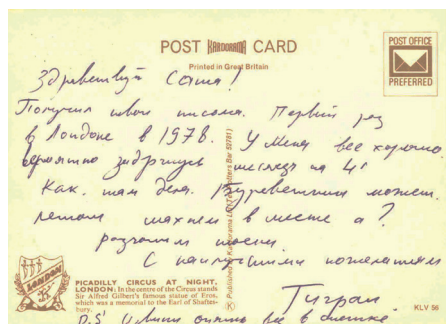 POST KARDORAMA CARD
Printed in Great Britain
POST OFFICE
PREFERRED
Здравствуй Саша!
Получил твои письма. Первый раз
в Лондоне в 1978. У меня все хорошо
вероятно задержусь месяца на 4
Как там дела.
летом махнем в месте а?
С наилучшими пожеланиями
Тигран
P.S.
LONDON
PICADILLY CIRCUS AT NIGHT,
LONDON: In the centre of the Circus stands
Sir Alfred Gilbert's famous statue of Eros,
which was a memorial to the Earl of Shaftes-
bury.
KLV 56